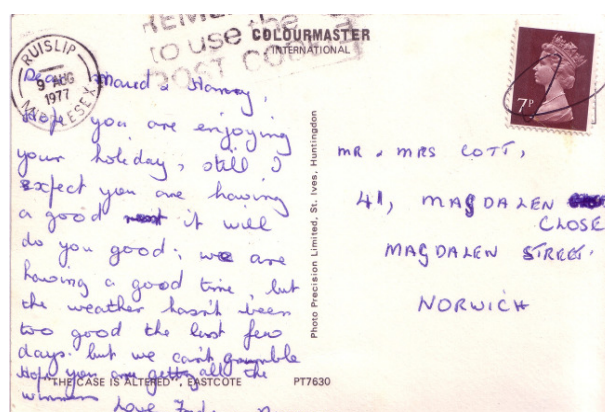 REMEMBER
to use the
POST CODE
COLOURMASTER
INTERNATIONAL
RUISLIP
9 AUG
1977
MIDDLESEX
7P
Dear Maud & Harvey,
Hope you are enjoying
your holiday, still I
expect you are having
a good rest it will
do you good; we are
having a good time, but
the weather hasn't been
too good the last few
days. but we can't grumble
Hope you are getting all the
winners
Love
"THE CASE IS ALTERED", EASTCOTE PT7630
Photo Precision Limited, St. Ives, Huntingdon
MR. MRS COTT,
41, MAGDALEN
CLOSE
MAGDALEN STREET.
NORWICH